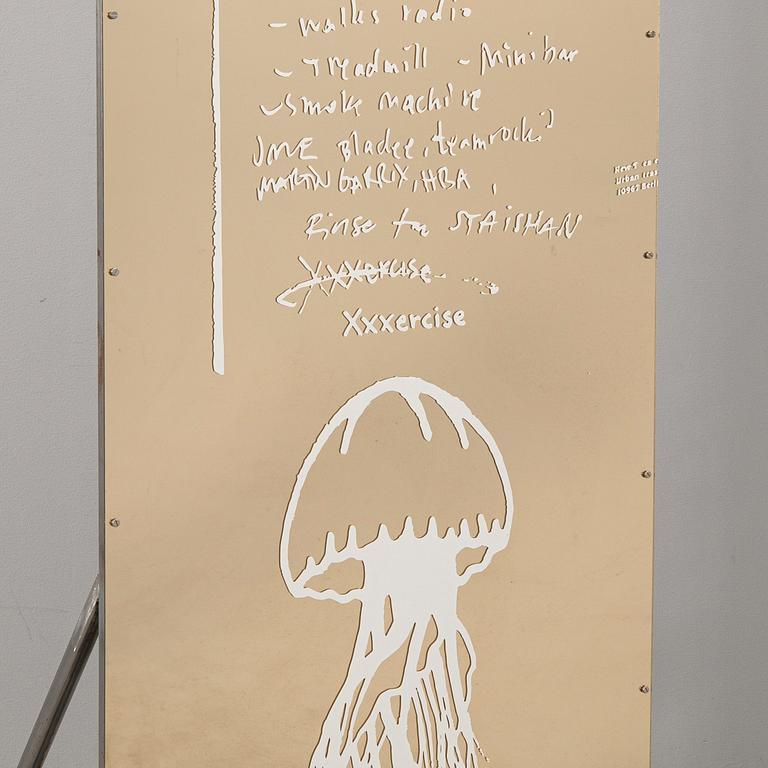 - walks radio
- Treadmill - Minibar
- Smoke Machine
Bladee, teamrock?
MARTIN GARRIX, HBA,
Rinse for STAISHAN
Xxxercise
Xxxercise
Urban
10967 Berl